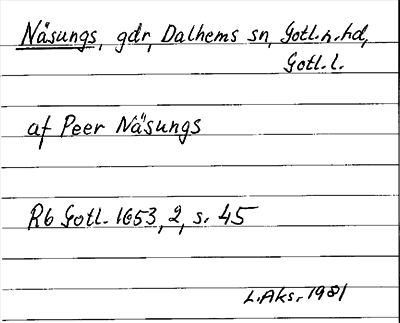 Näsungs, gdr, Dalhems sn, Gotl. n. hd,
Gotl. l.
af Peer Näsungs
Rb Gotl. 1653, 2, s. 45
L. Aks. 1981